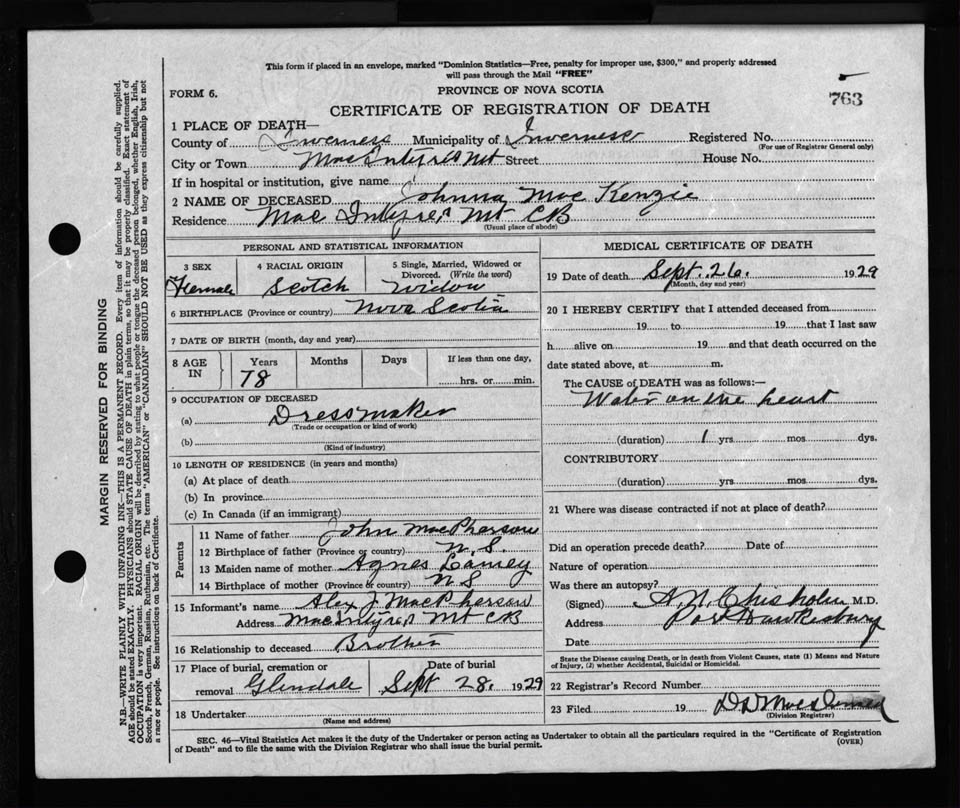 This form if placed in an envelope, marked "Dominion Statistics—Free, penalty for improper use, $300," and properly addressed
will pass through the Mail "FREE"
FORM 6.
PROVINCE OF NOVA SCOTIA
763
CERTIFICATE OF REGISTRATION OF DEATH
1 PLACE OF DEATH—
County of Inverness Municipality of Inverness Registered No.
(For use of Registrar General only)
City or Town MacIntyres Mt Street House No.
If in hospital or institution, give name
2 NAME OF DECEASED Johnna MacKenzie
Residence MacIntyres Mt CB
(Usual place of abode)
PERSONAL AND STATISTICAL INFORMATION
3 SEX
Female
4 RACIAL ORIGIN
Scotch
5 Single, Married, Widowed or
Divorced. (Write the word)
Widow
6 BIRTHPLACE (Province or country) Nova Scotia
7 DATE OF BIRTH (month, day and year)
8 AGE
IN
Years
78
Months
Days
If less than one day,
hrs. or min.
9 OCCUPATION OF DECEASED
(a) Dressmaker
(Trade or occupation or kind of work)
(b)
(Kind of industry)
10 LENGTH OF RESIDENCE (in years and months)
(a) At place of death
(b) In province
(c) In Canada (if an immigrant)
Parents
11 Name of father John MacPherson
12 Birthplace of father (Province or country) N.S.
13 Maiden name of mother Agnes Lamey
14 Birthplace of mother (Province or country) N S
15 Informant's name Alex J MacPherson
Address MacIntyres Mt CB
16 Relationship to deceased Brother
17 Place of burial, cremation or
removal Glendale
Date of burial
Sept 28. 1929
18 Undertaker
(Name and address)
MEDICAL CERTIFICATE OF DEATH
19 Date of death Sept. 26. 1929
(Month, day and year)
20 I HEREBY CERTIFY that I attended deceased from
19 to 19 that I last saw
h alive on 19 and that death occurred on the
date stated above, at m.
The CAUSE of DEATH was as follows:—
Water on the heart
(duration) 1 yrs. mos. dys.
CONTRIBUTORY
(duration) yrs. mos. dys.
21 Where was disease contracted if not at place of death?
Did an operation precede death? Date of
Nature of operation
Was there an autopsy?
(Signed) A. N. Chisholm M.D.
Address Port Hawkesbury
Date
State the Disease causing Death, or in death from Violent Causes, state (1) Means and Nature
of Injury, (2) whether Accidental, Suicidal or Homicidal.
22 Registrar's Record Number
23 Filed 19
(Division Registrar)
SEC. 46—Vital Statistics Act makes it the duty of the Undertaker or person acting as Undertaker to obtain all the particulars required in the "Certificate of Registration
of Death" and to file the same with the Division Registrar who shall issue the burial permit.
(OVER)
MARGIN RESERVED FOR BINDING
N.B.—WRITE PLAINLY WITH UNFADING INK—THIS IS A PERMANENT RECORD. Every item of information should be carefully supplied.
AGE should be stated EXACTLY. PHYSICIANS should STATE CAUSE OF DEATH in plain terms, so that it may be properly classified. Exact statement of
OCCUPATION is very important. RACIAL ORIGIN will be described by stating to what people or tongue the deceased person belonged, whether English, Irish,
Scotch, French, German, Russian, Ruthenian, etc. The terms "AMERICAN" or "CANADIAN" SHOULD NOT BE USED as they express citizenship but not
a race or people. See instructions on back of Certificate.